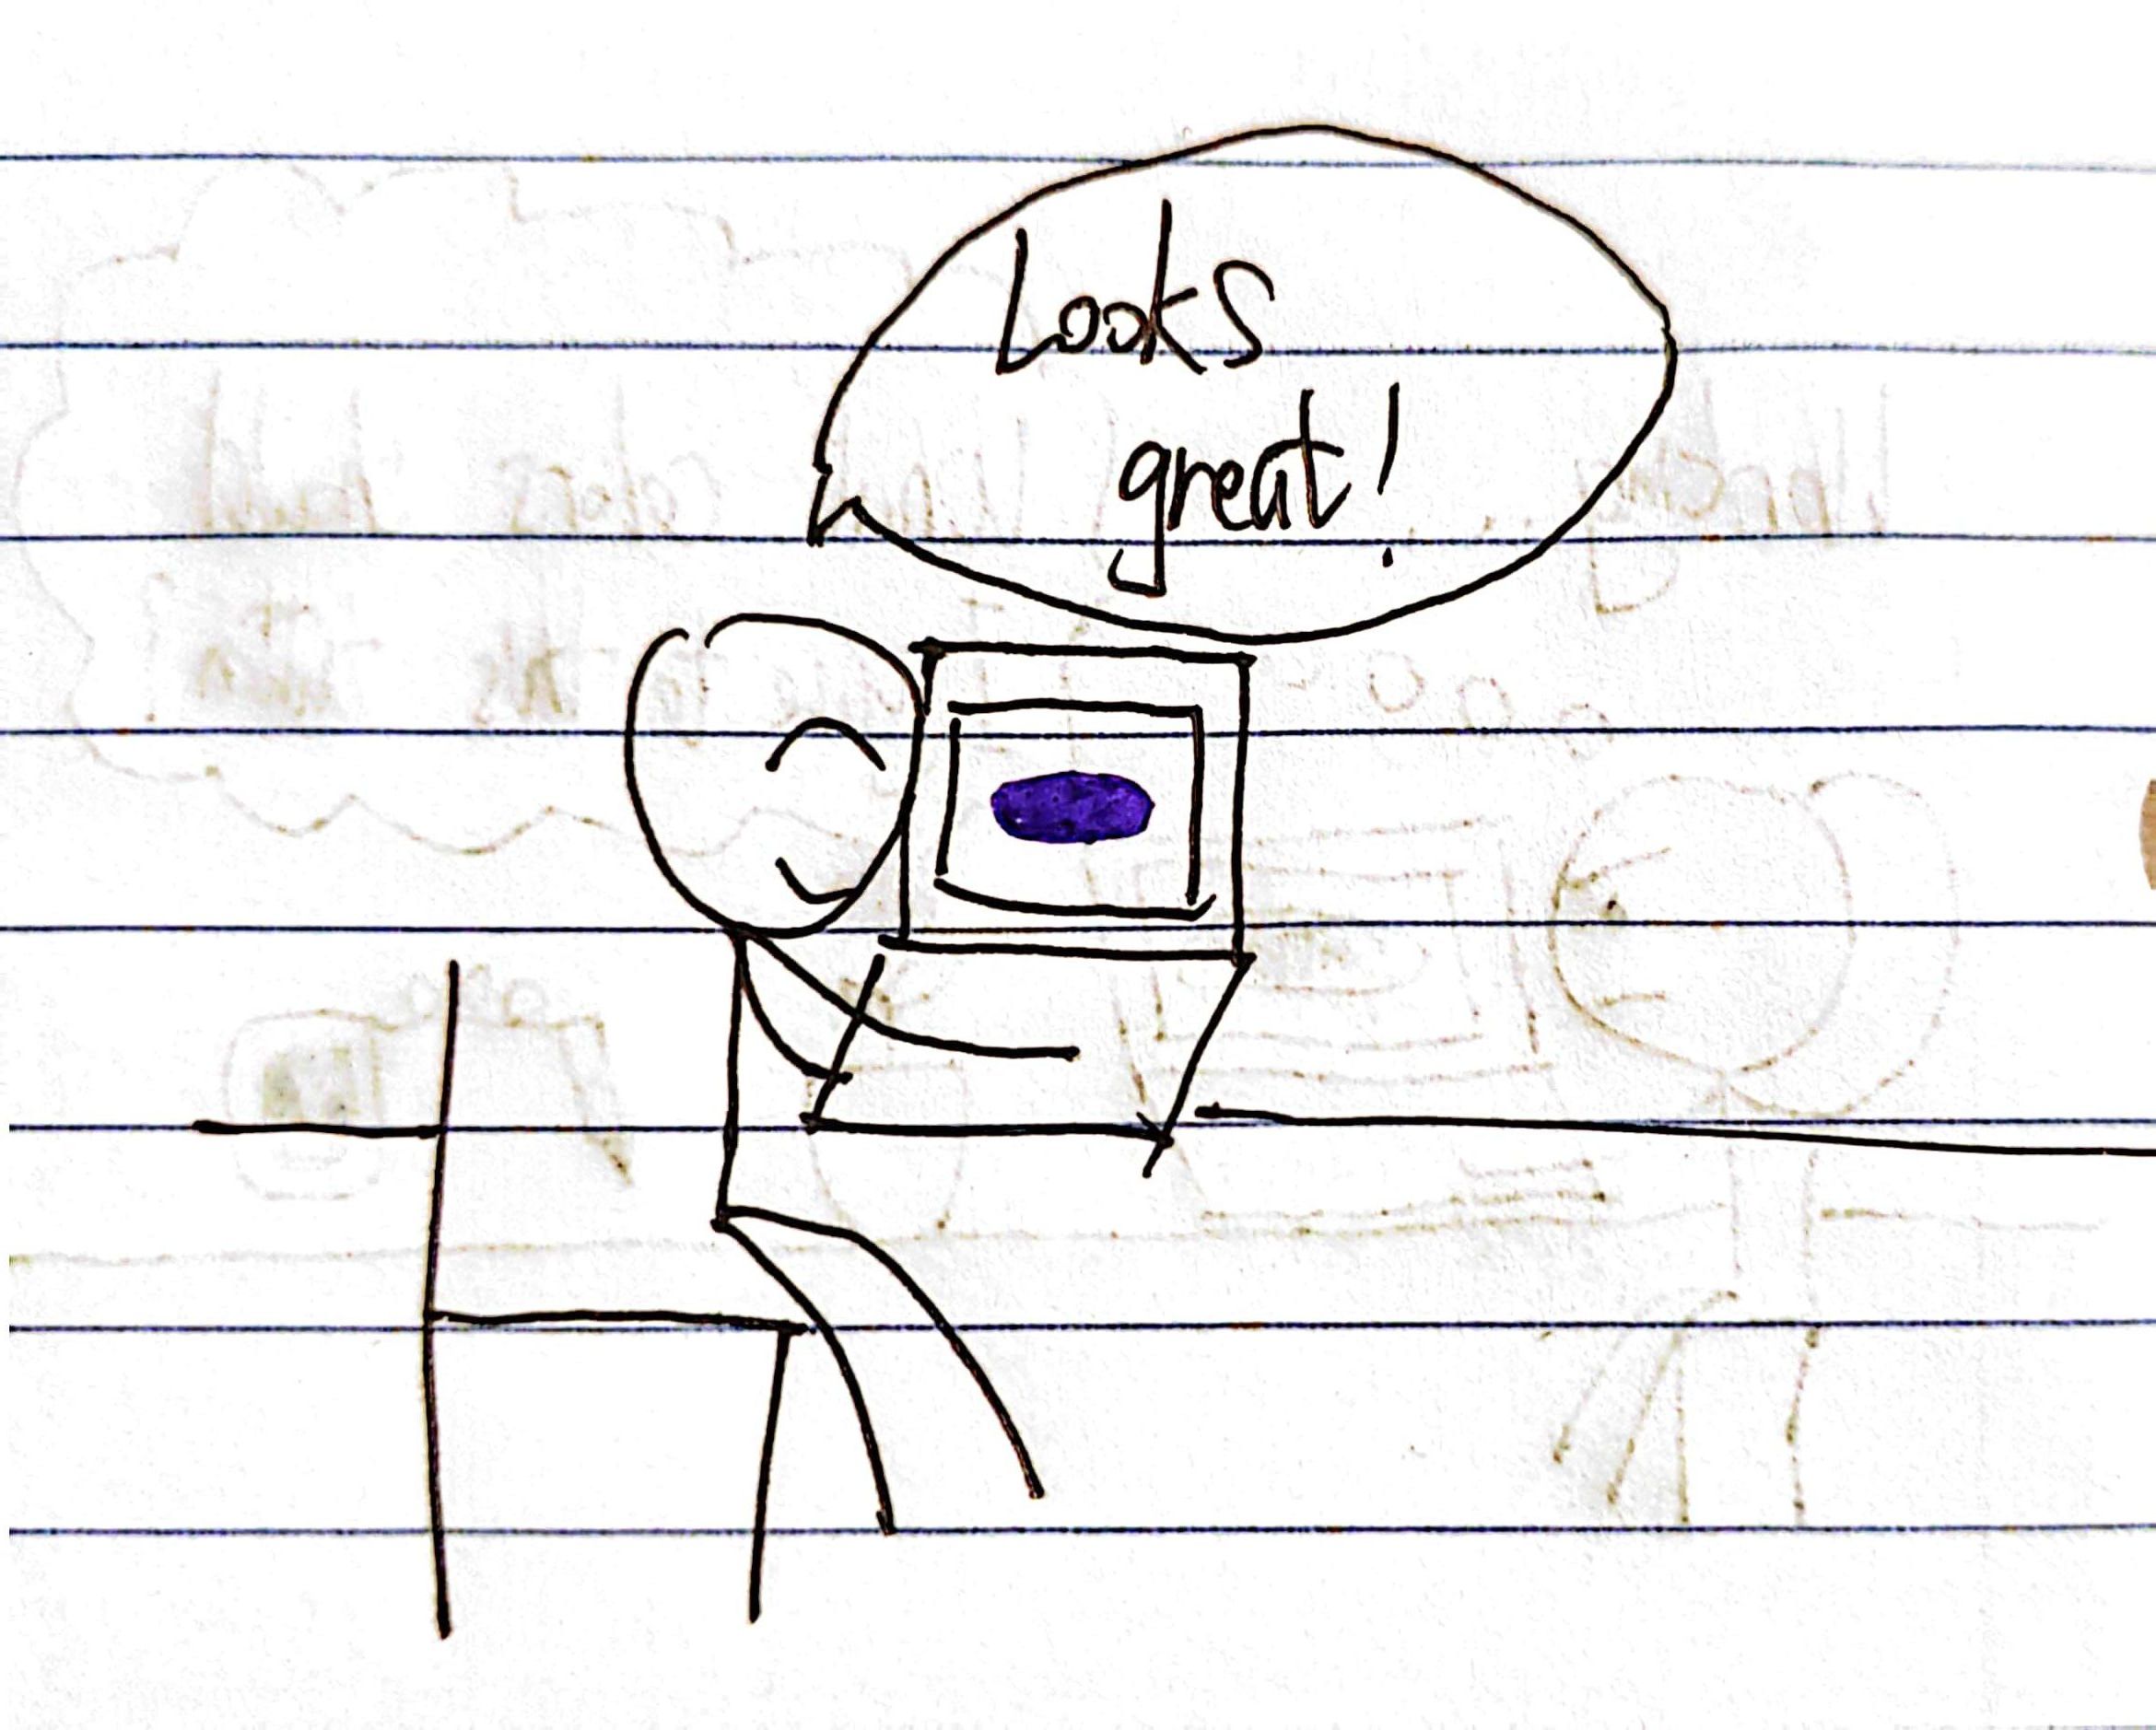 Looks
great!